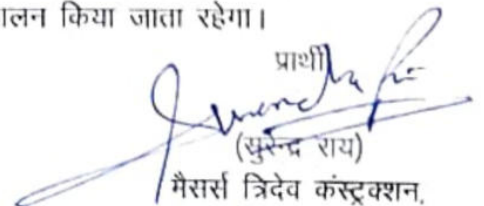 ालन किया जाता रहेगा।
प्रार्थी
(सुरेन्द्र राय)
मैसर्स त्रिदेव कंस्ट्रक्शन,